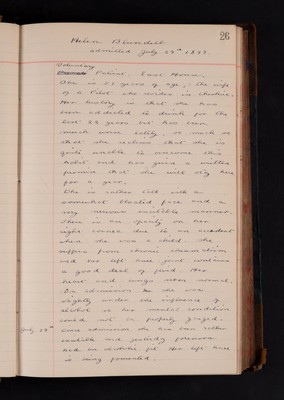 26
Helen Blundell
admitted July 27th 1883.
Voluntary
Patient. East House.
She is 51 years of age, : the wife
of a Pilot who resides in Cheshire.
Her history is that she has
been addicted to drink for the
last 23 years but has been
much worse lately, so much so
that she realises that she is
quite unable to overcome this
habit and has given a written
promise that she will stay here
for a year.
She is rather tall with a
somewhat bloated face and a
very nervous excitable manner.
There is an opacity on her
right cornea due to an accident
when she was a child. She
suffers from chronic rheumatism
and her left knee joint contains
a good deal of fluid. Her
heart and lungs seem normal.
On admission she was
slightly under the influence of
alcohol so her mental condition
could not be properly gauged.
July 28th Since admission she has been rather
excitable and
had an alcoholic fit. Her left knee
is being fomented.